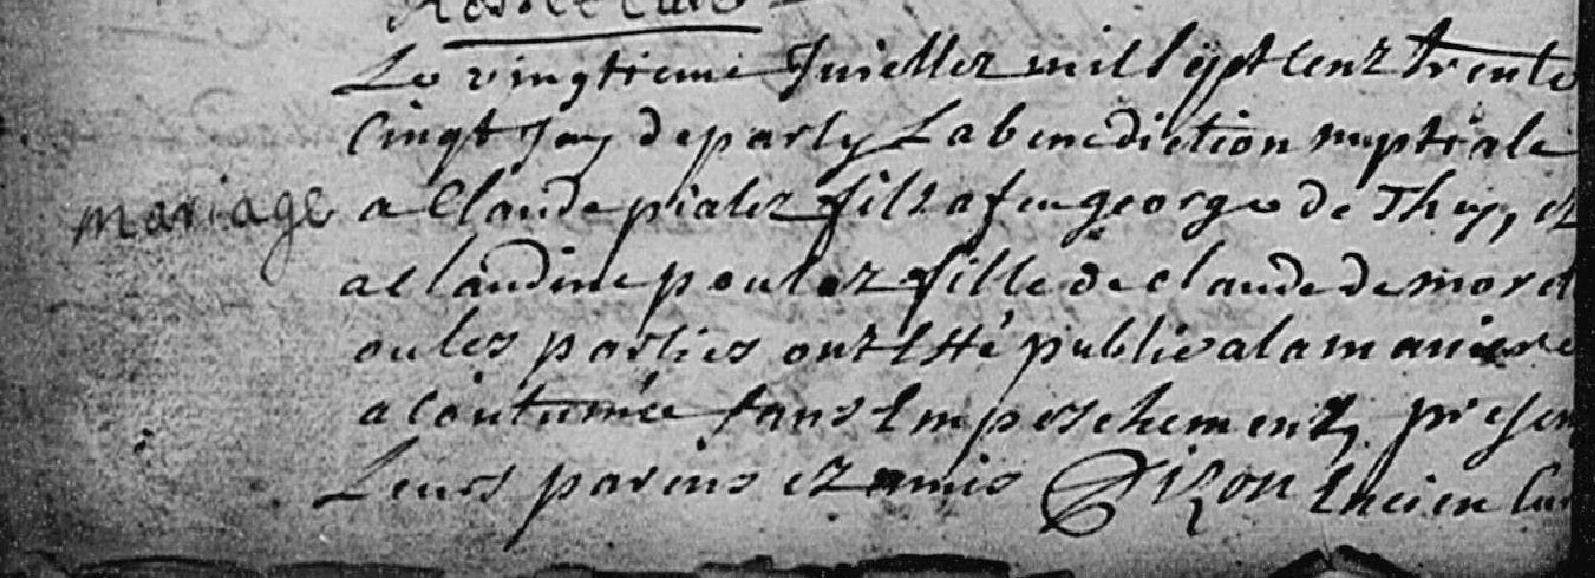 Le vingtieme Juiellez mill sept Cenz trente
Cingt Jay deparly La benediction nuptiale
mariage a Claude pialez filz a feu george de Thuy, ez
a Claudine poulez fille de claude de
ou les parlies onz Esté publie a la maniere
acoutumée sans Empeschemenz, presen
Leurs parens ez amis Dizon Encien Cur